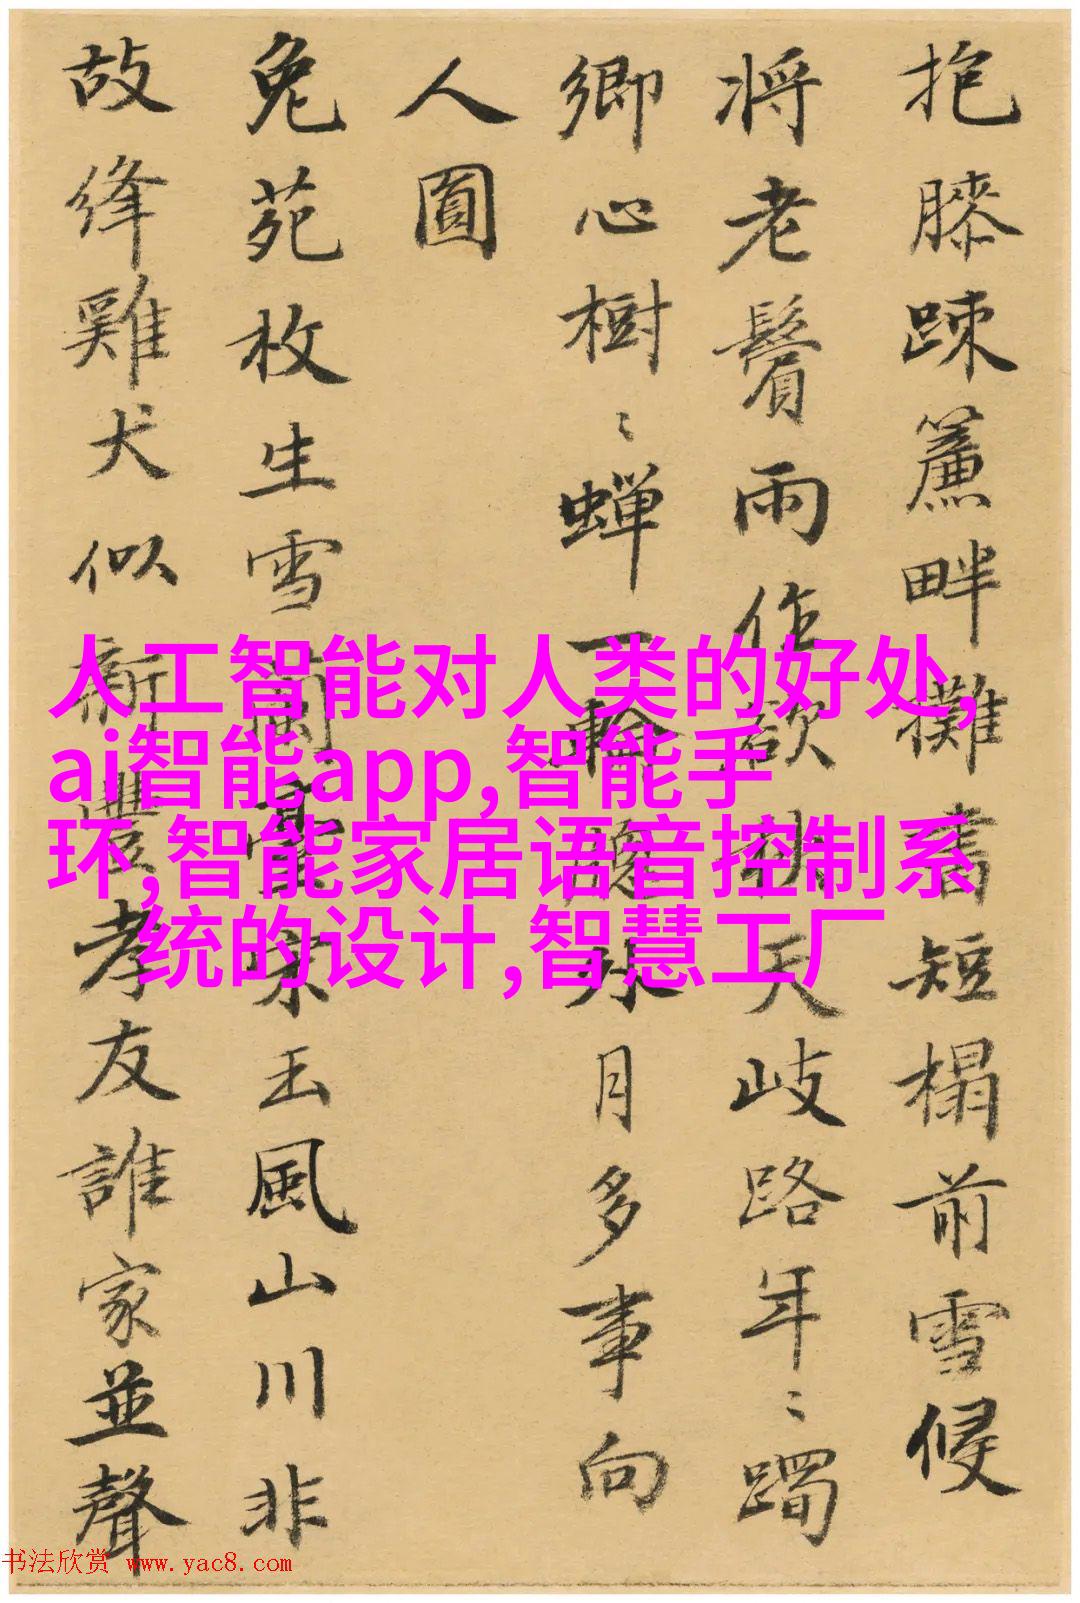 抱膝踈簾畔攤書短榻前雪候
将老鬢雨作欲秋天岐路年〻躅
鄉心樹〻蟬一輪隐水月多事向
人圓
兔苑枚生雪蘭臺宋玉風山川非
故绛雞犬似新豐孝友誰家並聲
人工智能对人类的好处,
ai智能app,智能手
环,智能家居语音控制系
统的设计,智慧工厂
书法欣赏 www.yac8.com